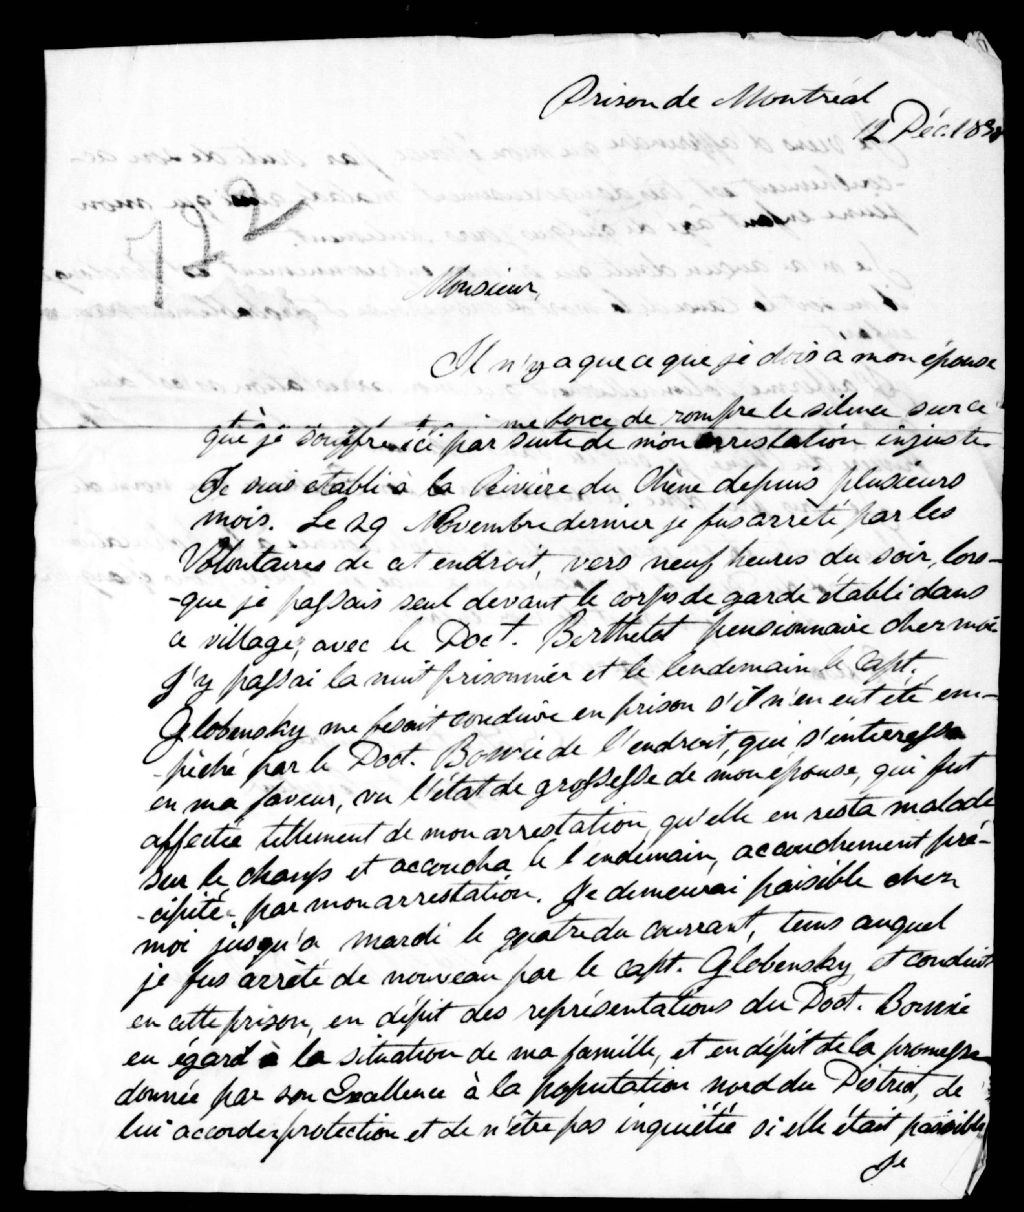 Prison de Montréal
12 Déc. 1838
722
Monsieur,
Il n'y a que ce que je dois a mon épouse
me force de rompre le silence sur ce
que je souffre ici par suite de mon arrestation injuste.
Je suis établi à la Rivière du Chêne depuis plusieurs
mois. Le 29 Novembre dernier je fus arrêté, par les
Volontaires de cet endroit, vers neuf heures du soir, lors-
-que je passais seul devant le corps de garde établi dans
ce village, avec le Doct. Berthelot pensionnaire chez moi
J'y passai la nuit prisonnier et le lendemain le Capt.
Globensky me fesait conduire en prison s'il n'en eut été em-
-pêché par le Doct. Bowie de l'endroit, qui s'interessa
en ma faveur, vu l'état de grossesse de mon épouse, qui fut
affectée tellement de mon arrestation, qu'elle en resta malade
sur le champs et accoucha le l'endemain, accouchement pré-
-cipité par mon arrestation. Je demeurai paisible chez
moi jusqu'a mardi le quatre du courrant, tems auquel
je fus arrêté de nouveau par le capt. Globensky, et conduit
en cette prison, en dépit des représentations du Doct. Bowie
eu égard à la situation de ma famille, et en dépit de la promesse
donnée par son Excellence à la population nord du District, de
lui accorder protection et de n'être pas inquiétée si elle était paisible
Je